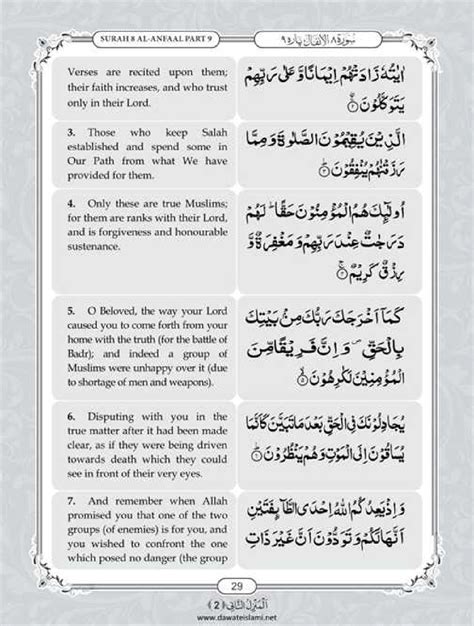 SURAH 8 AL-ANFAAL PART 9
سُوْرَة ٨ اَلْاَنْفَال پاره ٩
Verses are recited upon them;
their faith increases, and who trust
only in their Lord.
اٰيٰتُهٗ زَادَتْهُمْ اِيْمَانًا وَّعَلٰى رَبِّهِمْ
يَتَوَكَّلُوْنَ ﴿۲﴾
3. Those who keep Salah
established and spend some in
Our Path from what We have
provided for them.
الَّذِيْنَ يُقِيْمُوْنَ الصَّلٰوةَ وَمِمَّا
رَزَقْنٰهُمْ يُنْفِقُوْنَ ﴿۳﴾
4. Only these are true Muslims;
for them are ranks with their Lord,
and is forgiveness and honourable
sustenance.
اُولٰٓئِكَ هُمُ الْمُؤْمِنُوْنَ حَقًّا ؕ لَهُمْ
دَرَجٰتٌ عِنْدَ رَبِّهِمْ وَمَغْفِرَةٌ وَّ
رِزْقٌ كَرِيْمٌ ﴿۴﴾
5. O Beloved, the way your Lord
caused you to come forth from your
home with the truth (for the battle of
Badr); and indeed a group of
Muslims were unhappy over it (due
to shortage of men and weapons).
كَمَاۤ اَخْرَجَكَ رَبُّكَ مِنْۢ بَيْتِكَ
بِالْحَقِّ ۪ وَاِنَّ فَرِيْقًا مِّنَ
الْمُؤْمِنِيْنَ لَكٰرِهُوْنَ ﴿۵﴾
6. Disputing with you in the
true matter after it had been made
clear, as if they were being driven
towards death which they could
see in front of their very eyes.
يُجَادِلُوْنَكَ فِي الْحَقِّ بَعْدَ مَا تَبَيَّنَ كَاَنَّمَا
يُسَاقُوْنَ اِلَى الْمَوْتِ وَهُمْ يَنْظُرُوْنَ ﴿۶﴾
7. And remember when Allah
promised you that one of the two
groups (of enemies) is for you, and
you wished to confront the one
which posed no danger (the group
وَاِذْ يَعِدُكُمُ اللّٰهُ اِحْدَى الطَّآئِفَتَيْنِ
اَنَّهَا لَكُمْ وَتَوَدُّوْنَ اَنَّ غَيْرَ ذَاتِ
29
اَلْمَنْزِلُ الثَّانِي ﴿2﴾
www.dawateislami.net